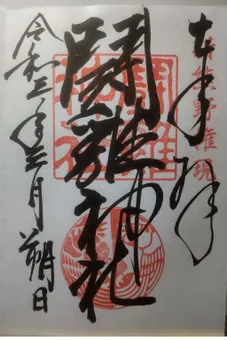 奉拝
新熊野権現
闘雞神社
令和二年二月朔日